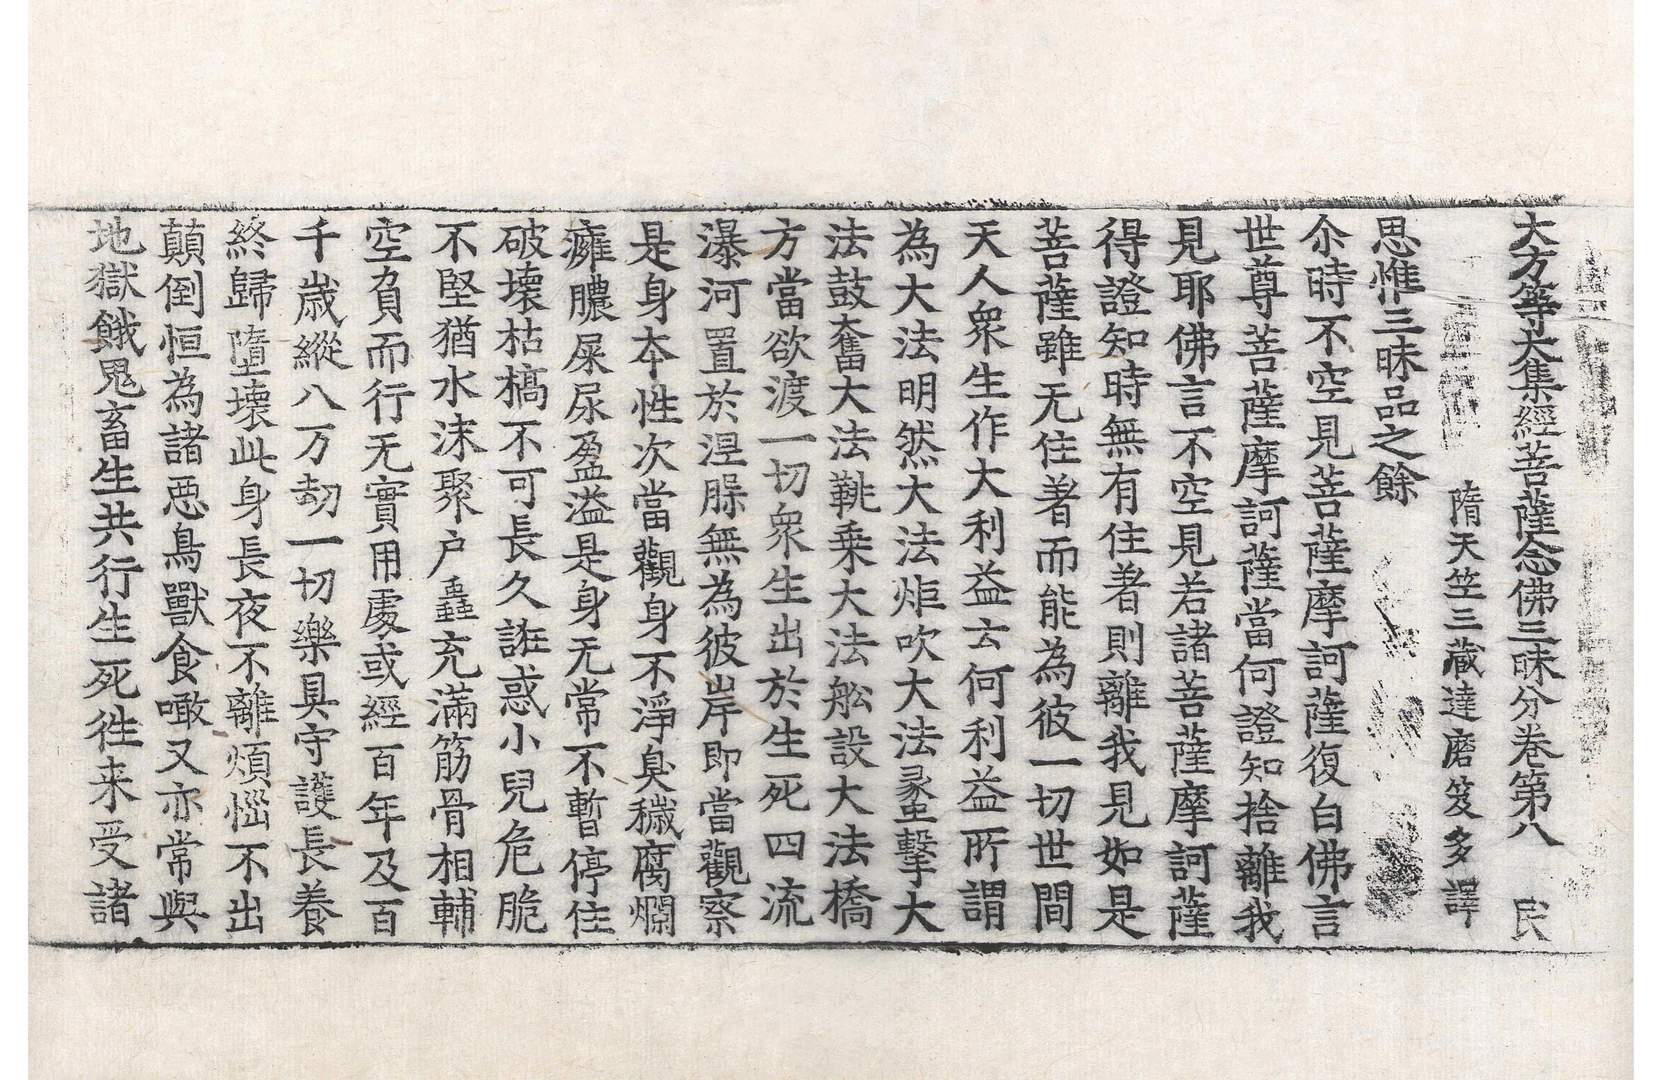 大方等大集經菩薩念佛三昧分卷第八　民
隋天竺三藏達磨笈多譯
思惟三昧品之餘
尒時不空見菩薩摩訶薩復白佛言
世尊菩薩摩訶薩當何證知捨離我
見耶佛言不空見若諸菩薩摩訶薩
得證知時無有住著則離我見如是
菩薩雖无住著而能為彼一切世間
天人衆生作大利益云何利益所謂
為大法明然大法炬吹大法䗍擊大
法鼓奮大法鞉乗大法舩設大法橋
方當欲渡一切衆生出於生死四流
瀑河置於涅𣫍無為彼岸即當觀察
是身夲性次當觀身不淨臭穢腐爛
癕膿屎尿盈溢是身无常不暫停住
破壞枯槁不可長久誑惑小兒危脆
不堅猶水沫聚户蟲充滿筋骨相輔
空負而行无實用處或經百年及百
千歲縱八万劫一切樂具守護長養
終歸墮壞此身長夜不離煩惱不出
顛倒恒為諸惡鳥獸食噉又亦常與
地獄餓鬼畜生共行生死往来受諸